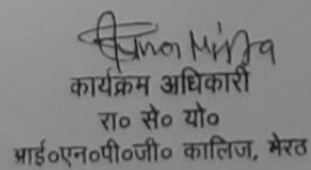 कार्यक्रम अधिकारी
रा० से० यो०
आई०एन०पी०जी० कालिज, मेरठ